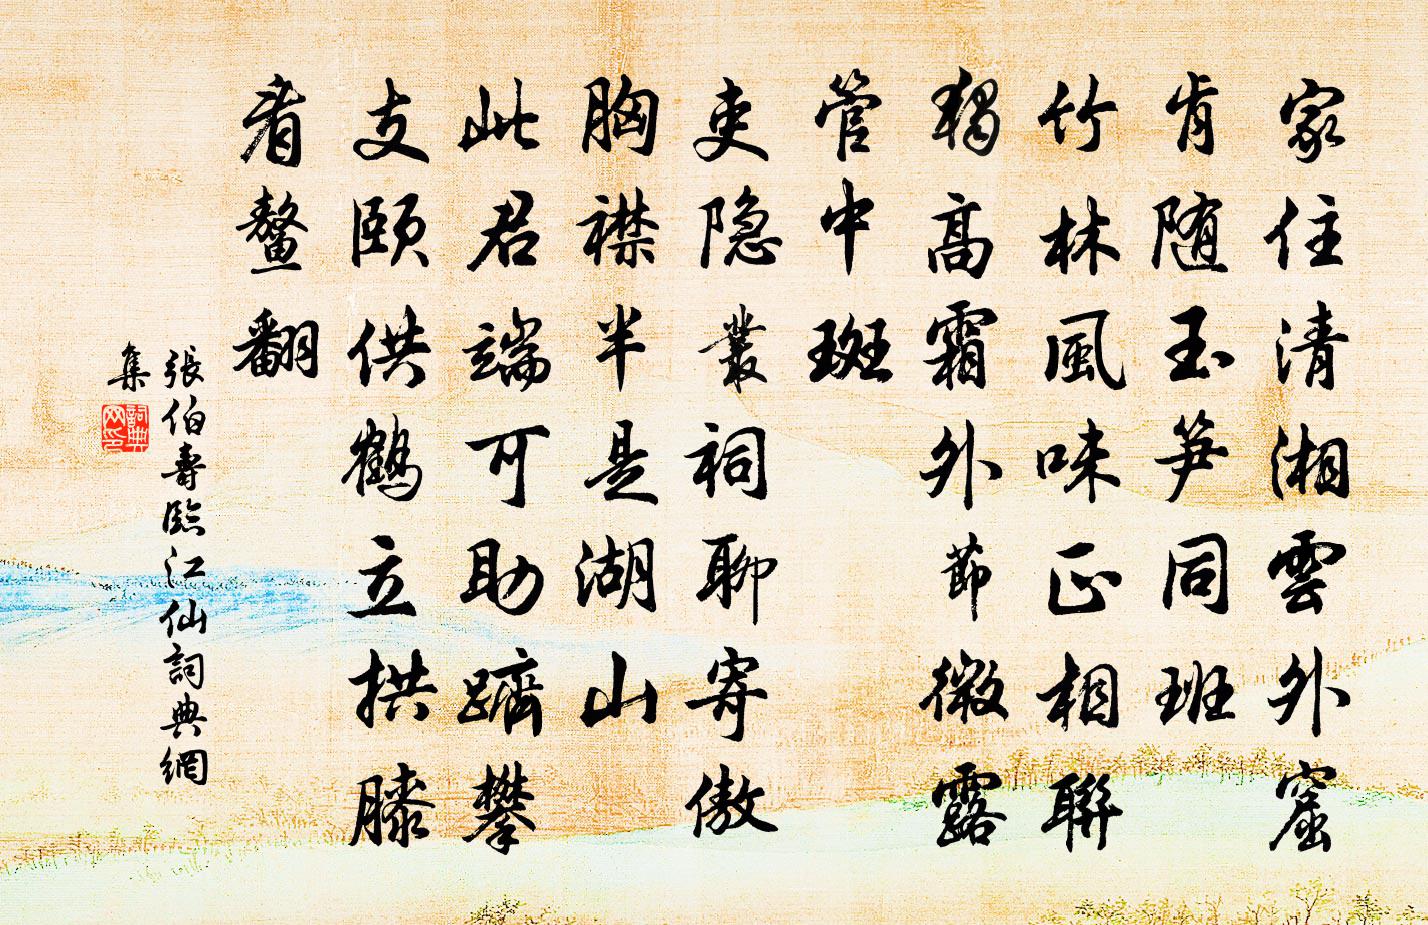 家住清湘雲外窟
肯随玉笋同班
竹林風味正相聯
獨高霜外節微露
管中斑
吏隐叢祠聊寄傲
胸襟半是湖山
此君端可助躋攀
支頤供鶴立拱膝
看鰲翻
張伯壽臨江仙詞典網
集
詞典
网印